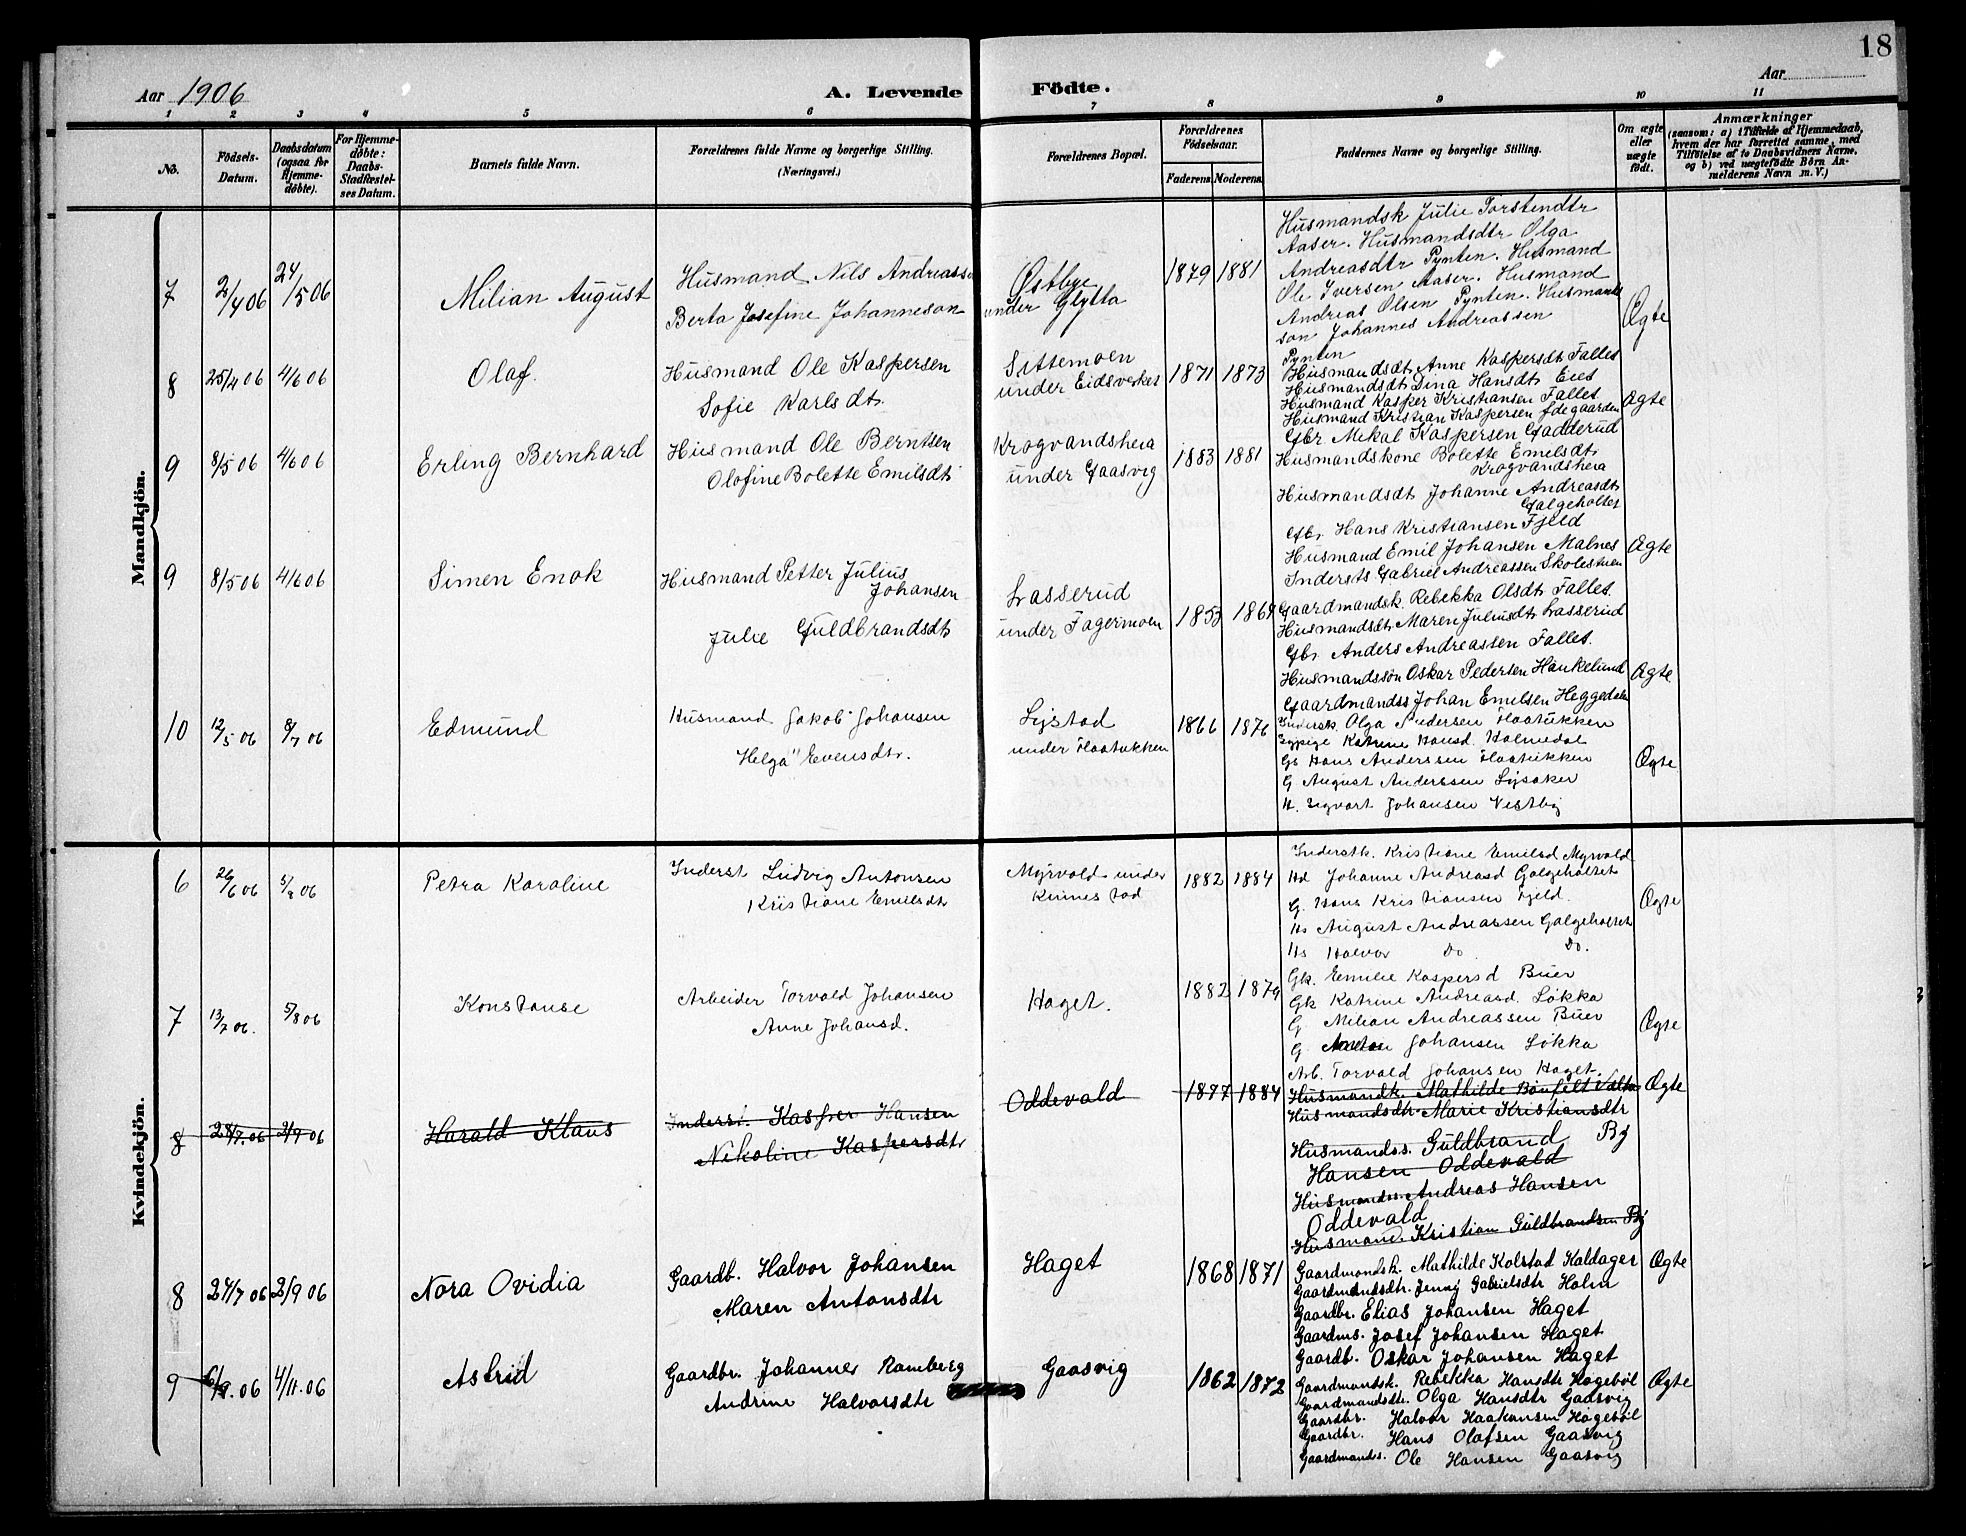 18
Aar 1906
A. Levende Födte.
Aar
1 2 3 4 5 6 7 8 9 10 11
No.
Födsels-Datum.
Daabsdatum (ogsaa for Hjemmedöbte).
For Hjemmedöbte: Daabs-Stadfæstelses Datum.
Barnets fulde Navn.
Forældrenes fulde Navne og borgerlige Stilling.
(Næringsvei.)
Forældrenes Bopæl.
Forældrenes Födselsaar.
Faderens Moderens
Faddernes Navne og borgerlige Stilling.
Om ægte eller uægte födt.
Anmærkninger
(saasom: a) i Tilfælde af Hjemmedaab, hvem der har forrettet samme, med Tilföielse af to Daabsvidners Navne, og b) ved uægtefödte Börn Anmelderens Navn m. V.)
Mandkjön.
7 2/4 06 24/5 06 Milian August
Husmand Nils Andreassen
Berta Josefine Johanneson
Østbye
under Glytta
1879 1881
Husmandsk Julie Torstendtr
Aaser. Husmandsdtr Olga
Andreasdtr Pynten. Husmand
Ole Iversen Aaser. Husmand
Andreas Olsen Pynten. Husmands
son Johannes Andreassen
Pynten
Ægte
8 25/4 06 4/6 06 Olaf.
Husmand Ole Kaspersen
Sofie Karlsdt.
Sittemoen
under Eidsverket
1871 1873
Husmandsdt. Anne Kaspersdt Fallet
Husmandsdt Dina Hansdt. Eiet
Husmand Kasper Kristiansen Fallet
Husmand Kristian Kaspersen Ødegaarden
Gbr Mikal Kaspersen Gadderud
Ægte
9 8/5 06 4/6 06 Erling Bernhard
Husmand Ole Berntsen
Olofine Bolette Emilsdt.
Krogvandsheia
under Gaasvig
1883 1881
Husmandskone Bolette Emilsdt.
Krogvandsheia
Husmandsdt Johanne Andreasdt
Galgeholtet
Gbr. Hans Kristiansen Fjeld
Husmand Emil Johansen Malnes
Indersts Gabriel Andreassen Skolestuen
Ægte
9 8/5 06 4/6 06 Simen Enok
Husmand Petter Julius
Johansen
Julie Guldbrandsdt.
Lasserud
under Fagermoen
1853 1869
Gaardmandsk. Rebekka Olsdt. Fallet.
Husmandsdt. Maren Juliusdt. Lasserud
Gbr. Anders Andreassen Fallet.
Husmandssøn Oskar Pedersen Haukelund
Gaardmandss Johan Emilsen Heggedalen
Ægte
10 12/5 06 8/7 06 Edmund
Husmand Jakob Johansen
Helga Evensdtr.
Lystad
under Flaatukken
1866 1876
Indersk. Olga Andersen Flaatukken
Sypige Katrine Hansd. Holmedal
Gs Hans Anderssen Flaatukken
G August Anderssen Lysaker
H. Sigvart Johansen Vestby
Ægte
Kvindekjön.
6 26/6 06 5/8 06 Petra Karoline
Inderst Ludvig Antonsen
Kristiane Emilsdtr
Myrvold under
Kinnestad
1882 1884
Indersk. Kristiane Emilsd Myrvold
Hd Johanne Andreasd Galgeholtet
G. Hans Kristiansen Fjeld.
Hs August Andreassen Galgeholtet
Hs Halvor Do Do.
Ægte
7 13/7 06. 5/8 06 Konstanse
Arbeider Torvald Johansen
Anne Johansd.
Haget.
1882 1879
Gk. Emilie Kaspersd Buer
Gk Katrine Andreasd. Løkka
G Milian Andreassen Buer
G. Johansen Løkka
Arb. Torvald Johansen Haget.
Ægte
8 28/7. 06 2/9 06 Harald Klaus
Inderst. Kasper Hansen
Nikoline Kaspersdtr
Oddevald
1877 1884
Husmandk. Mathilde
Husmandsdtr. Marie Kristiansdtr
By
Husmandss. Guldbrand
Hansen Oddevald
Husmandss. Andreas Hansen
Oddevald
Husmand. Kristian Guldbrandsen By
Ægte
8 27/7 06 2/9 06 Nora Ovidia
Gaardb. Halvor Johansen
Maren Antonsdtr
Haget
1868 1871
Gaardmandsk. Mathilde Kolstad Kaldager
Gaardmandsdtr. Jenny Gabrielsdtr Holm
Gaardbr. Elias Johansen Haget
Gaardms. Josef Johansen Haget
Gaardb. Oskar Johansen Haget
Ægte
9 6/9. 06 4/11. 06 Astrid
Gaardbr. Johannes Ramberg
Andrine Halvorsdtr
Gaasvig
1862 1872
Gaardmandsk. Rebekka Hansdtr Hagebøl
Gaardmandsdtr. Olga Hansdtr Gaasvig
Gaardbr. Halvor Haakonsen Hagebøl
Gaardbr. Hans Olafsen Gaasvig
Gaardmands. Ole Hansen Gaasvig
Ægte